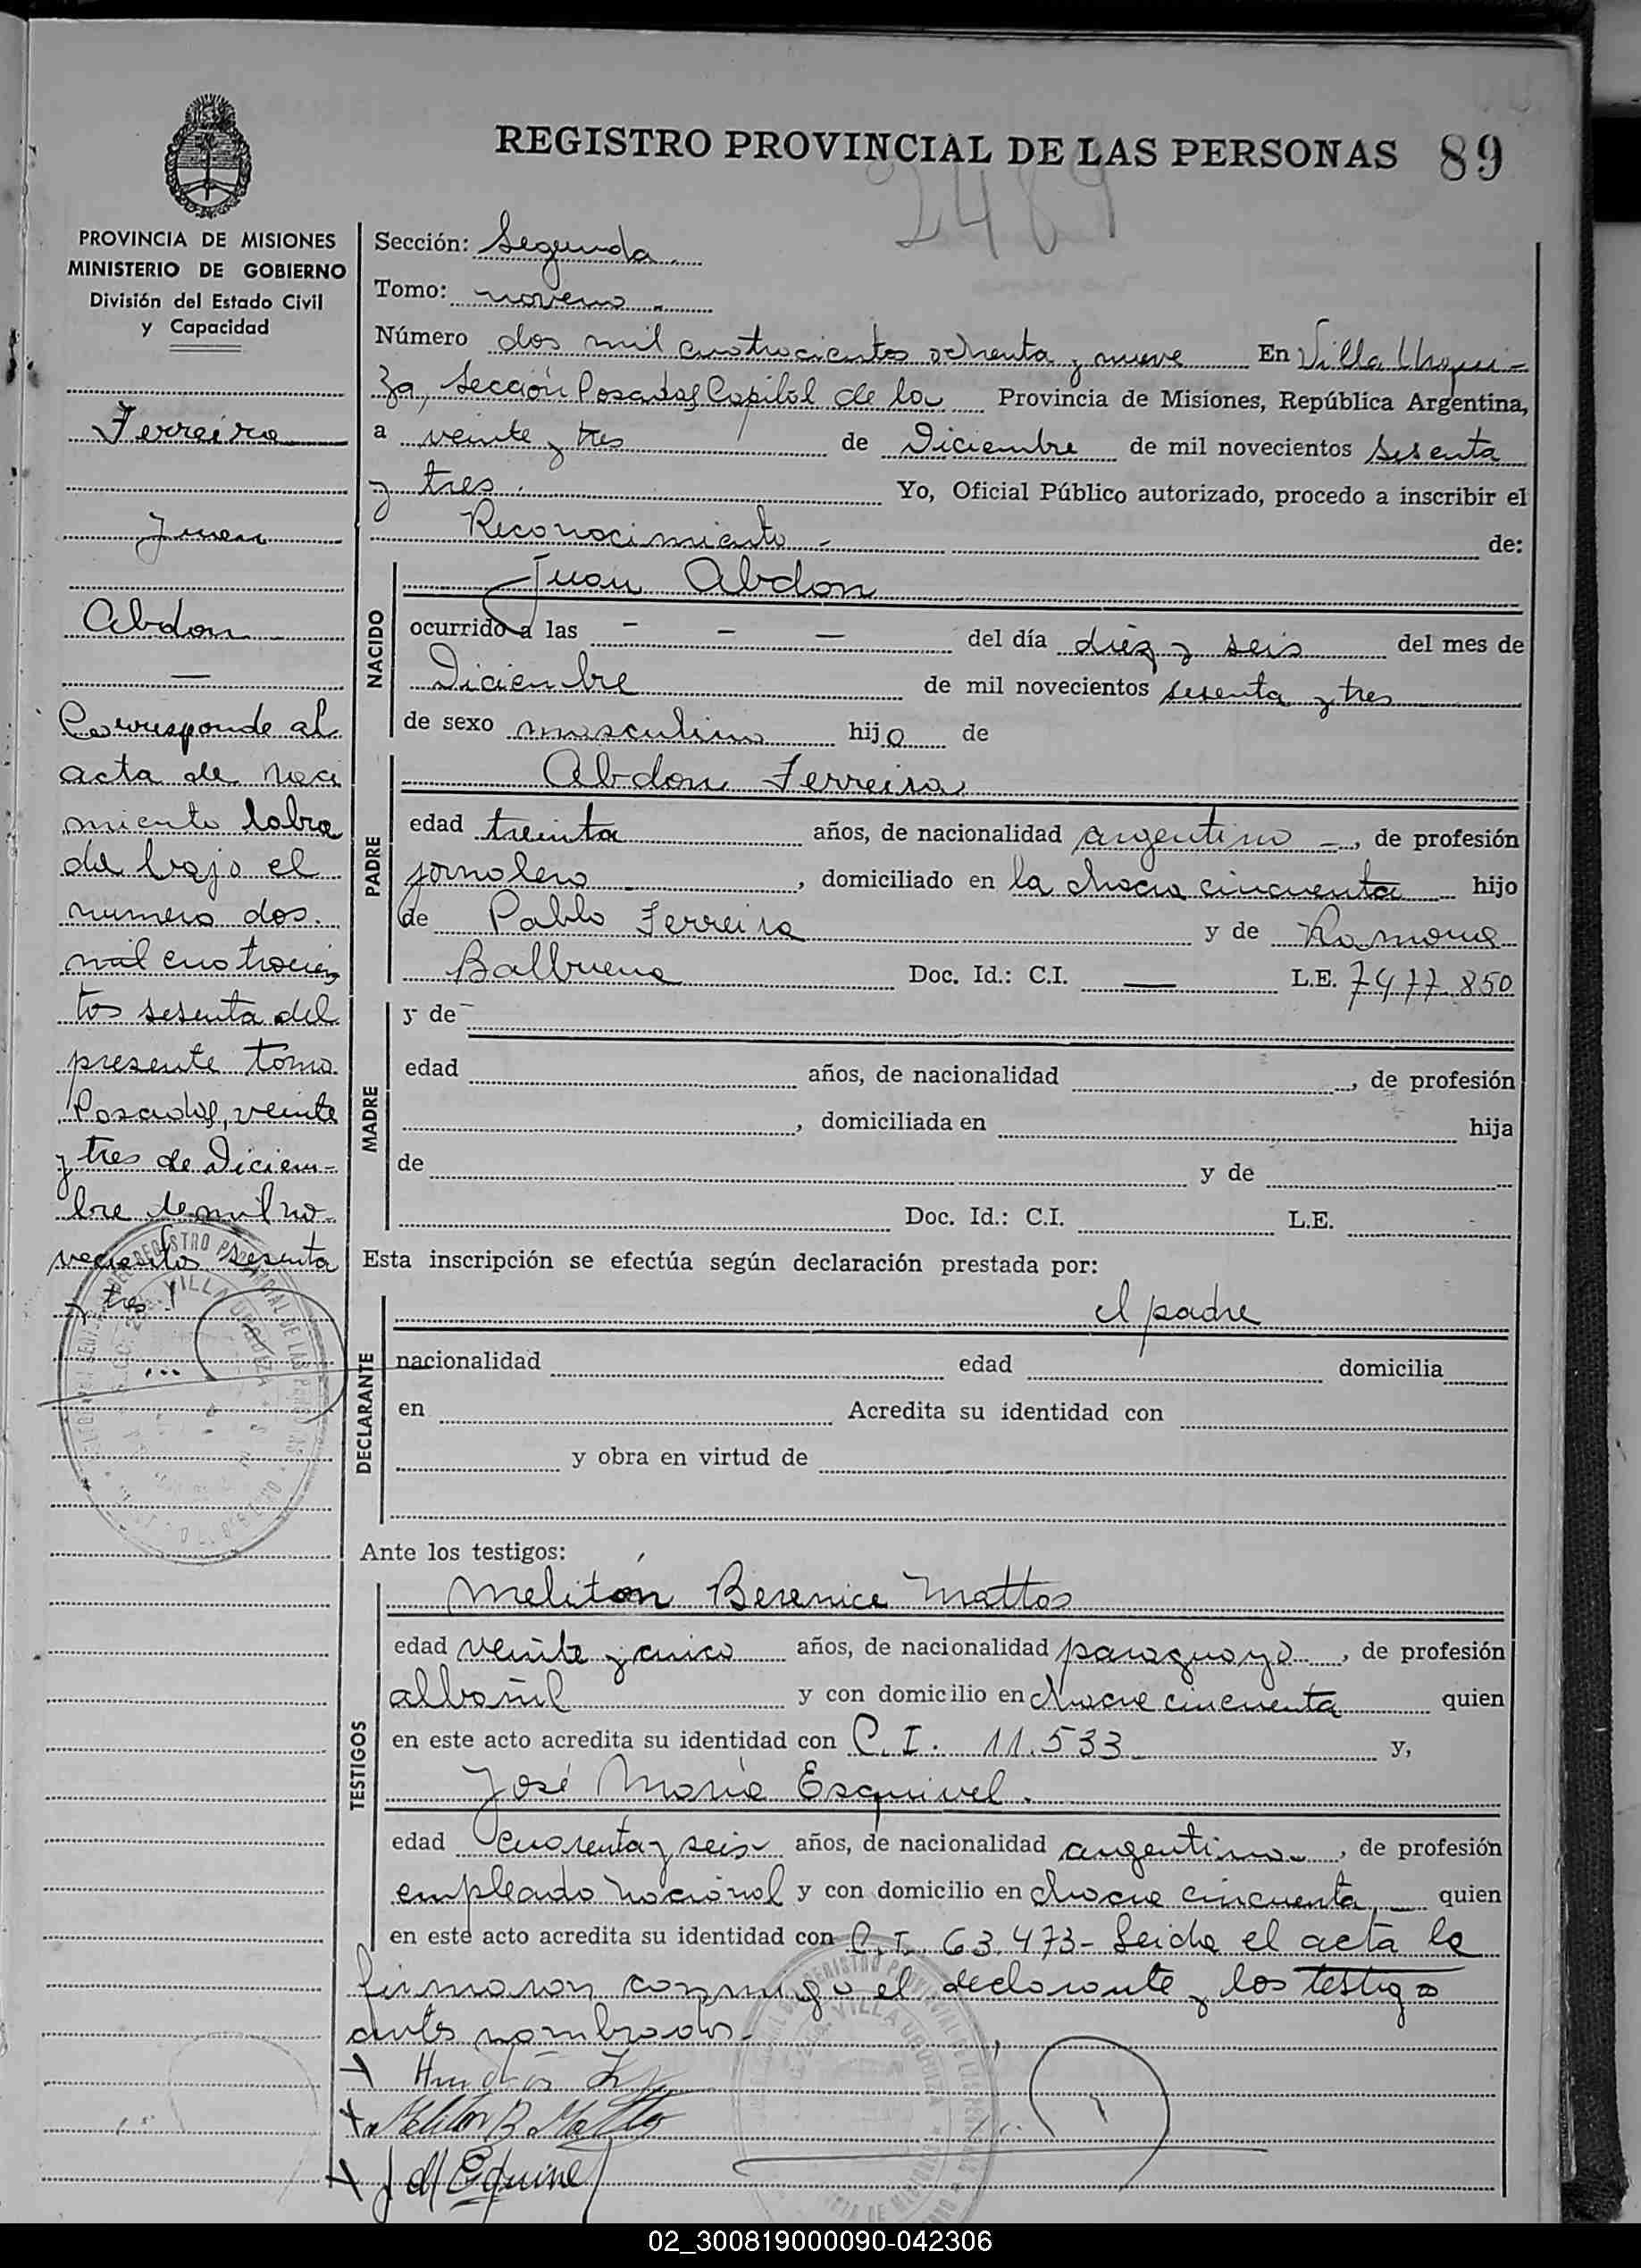 REGISTRO PROVINCIAL DE LAS PERSONAS 89
2489
PROVINCIA DE MISIONES
MINISTERIO DE GOBIERNO
División del Estado Civil
y Capacidad
Ferreira
Juan
Abdon
Corresponde al
acta de naci
miento labra
da bajo el
numero dos
mil cuatrocien
tos sesenta del
presente tomo
Posadas, veinte
y tres de Diciem-
bre de mil no-
vecientos sesenta
y tres
Sección: Segunda
Tomo: noveno
Número dos mil cuatrocientos ochenta y nueve En Villa Urqui-
za, Sección Posadas Capital de la Provincia de Misiones, República Argentina,
a veinte y tres de Diciembre de mil novecientos sesenta
y tres Yo, Oficial Público autorizado, procedo a inscribir el
Reconocimiento - de:
NACIDO
Juan Abdon
ocurrido a las - - - del día diez y seis del mes de
Diciembre de mil novecientos sesenta y tres
de sexo masculino hijo de
PADRE
Abdon Ferreira
edad treinta años, de nacionalidad argentino -, de profesión
jornalero, domiciliado en la chacra cincuenta hijo
de Pablo Ferreira y de Ramona
Balbuena Doc. Id.: C.I. — L.E. 7477.850
MADRE
y de
edad años, de nacionalidad , de profesión
, domiciliada en hija
de y de
Doc. Id.: C.I. L.E.
Esta inscripción se efectúa según declaración prestada por:
DECLARANTE
el padre
nacionalidad edad domicilia
en Acredita su identidad con
y obra en virtud de
Ante los testigos:
TESTIGOS
Melitón Berenice Mattos
edad veinte y cinco años, de nacionalidad paraguayo, de profesión
albañil y con domicilio en chacra cincuenta quien
en este acto acredita su identidad con C.I. 11.533 y,
José María Esquivel.
edad cuarenta y seis años, de nacionalidad argentino, de profesión
empleado nacional y con domicilio en chacra cincuenta quien
en este acto acredita su identidad con C.I. 63.473- Leida el acta la
firmaron conmigo el declarante y los testigo
ants nombrados-
Meliton B. Mattos
02_300819000090-042306